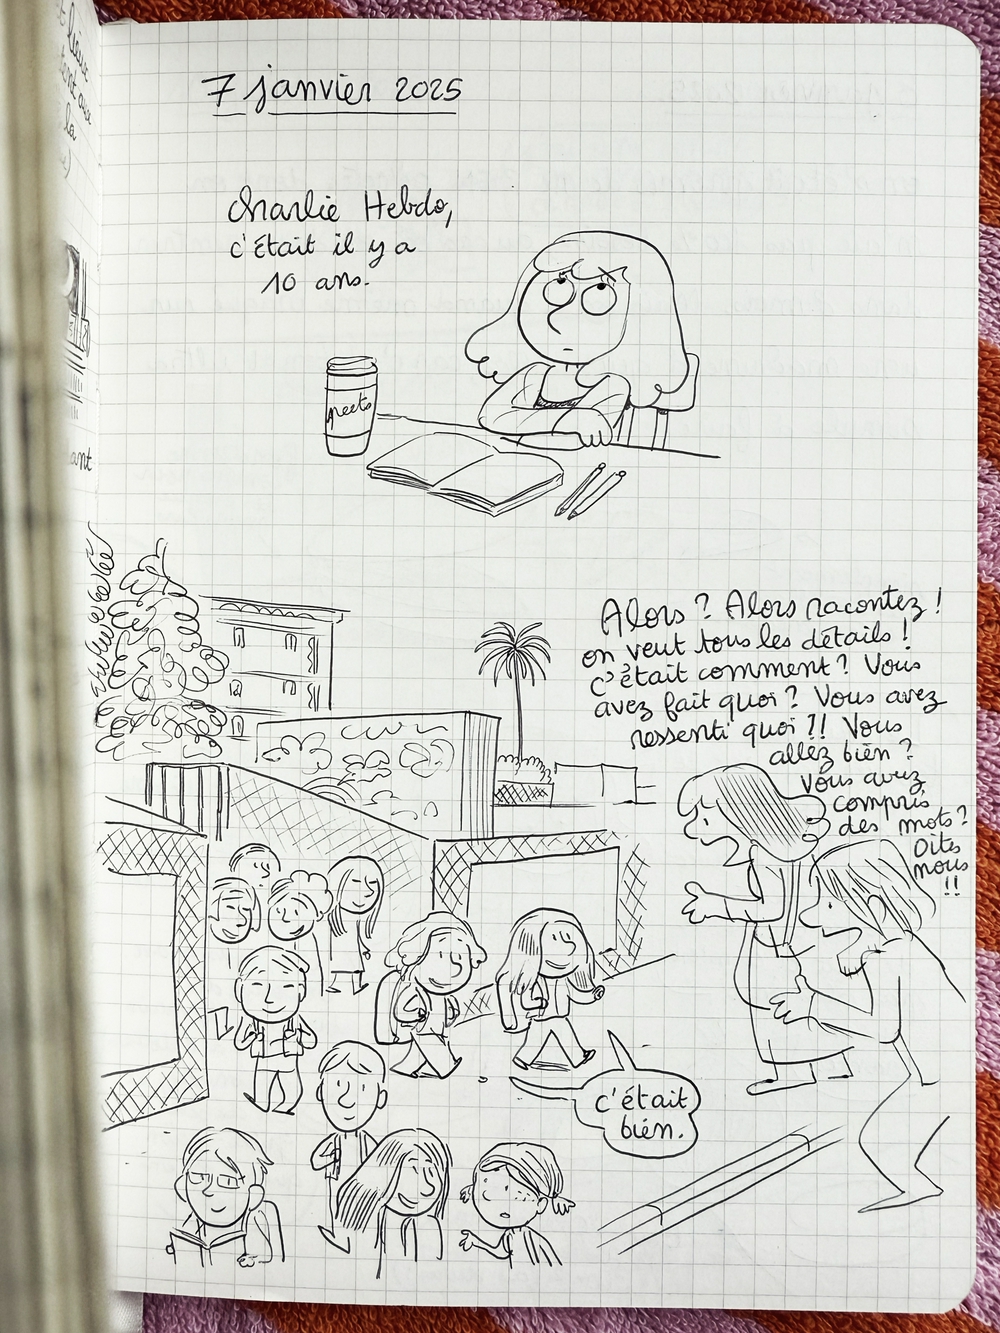 7 janvier 2025
Charlie Hebdo,
c'était il y a
10 ans.
peets
Alors ? Alors racontez !
on veut tous les détails !
c'était comment ? Vous
avez fait quoi ? Vous avez
ressenti quoi ?! Vous
allez bien ?
Vous avez
compris
des mots ?
Dites
nous
!!
c'était
bien.
la
ant